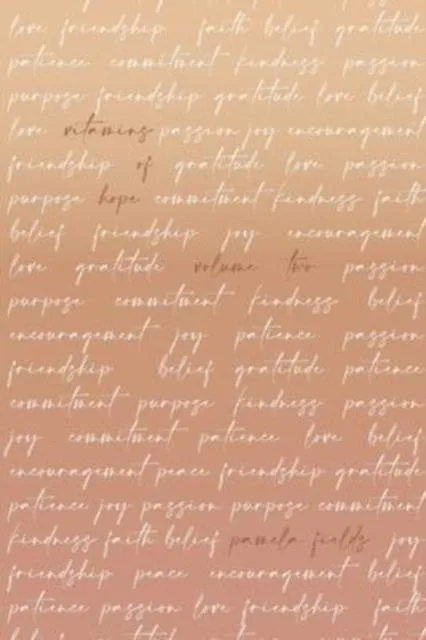 love friendship faith belief gratitude
patience commitment kindness passion
purpose friendship gratitude love belief
love vitamins passion joy encouragement
friendship of gratitude love passion
purpose hope commitment kindness faith
belief friendship joy encouragement
love gratitude volume two passion
purpose commitment kindness belief
encouragement joy patience passion
friendship belief gratitude patience
commitment purpose kindness passion
joy commitment patience love belief
encouragement peace friendship gratitude
patience joy passion purpose commitment
kindness faith belief pamela fields joy
friendship peace encouragement belief
patience passion love friendship faith